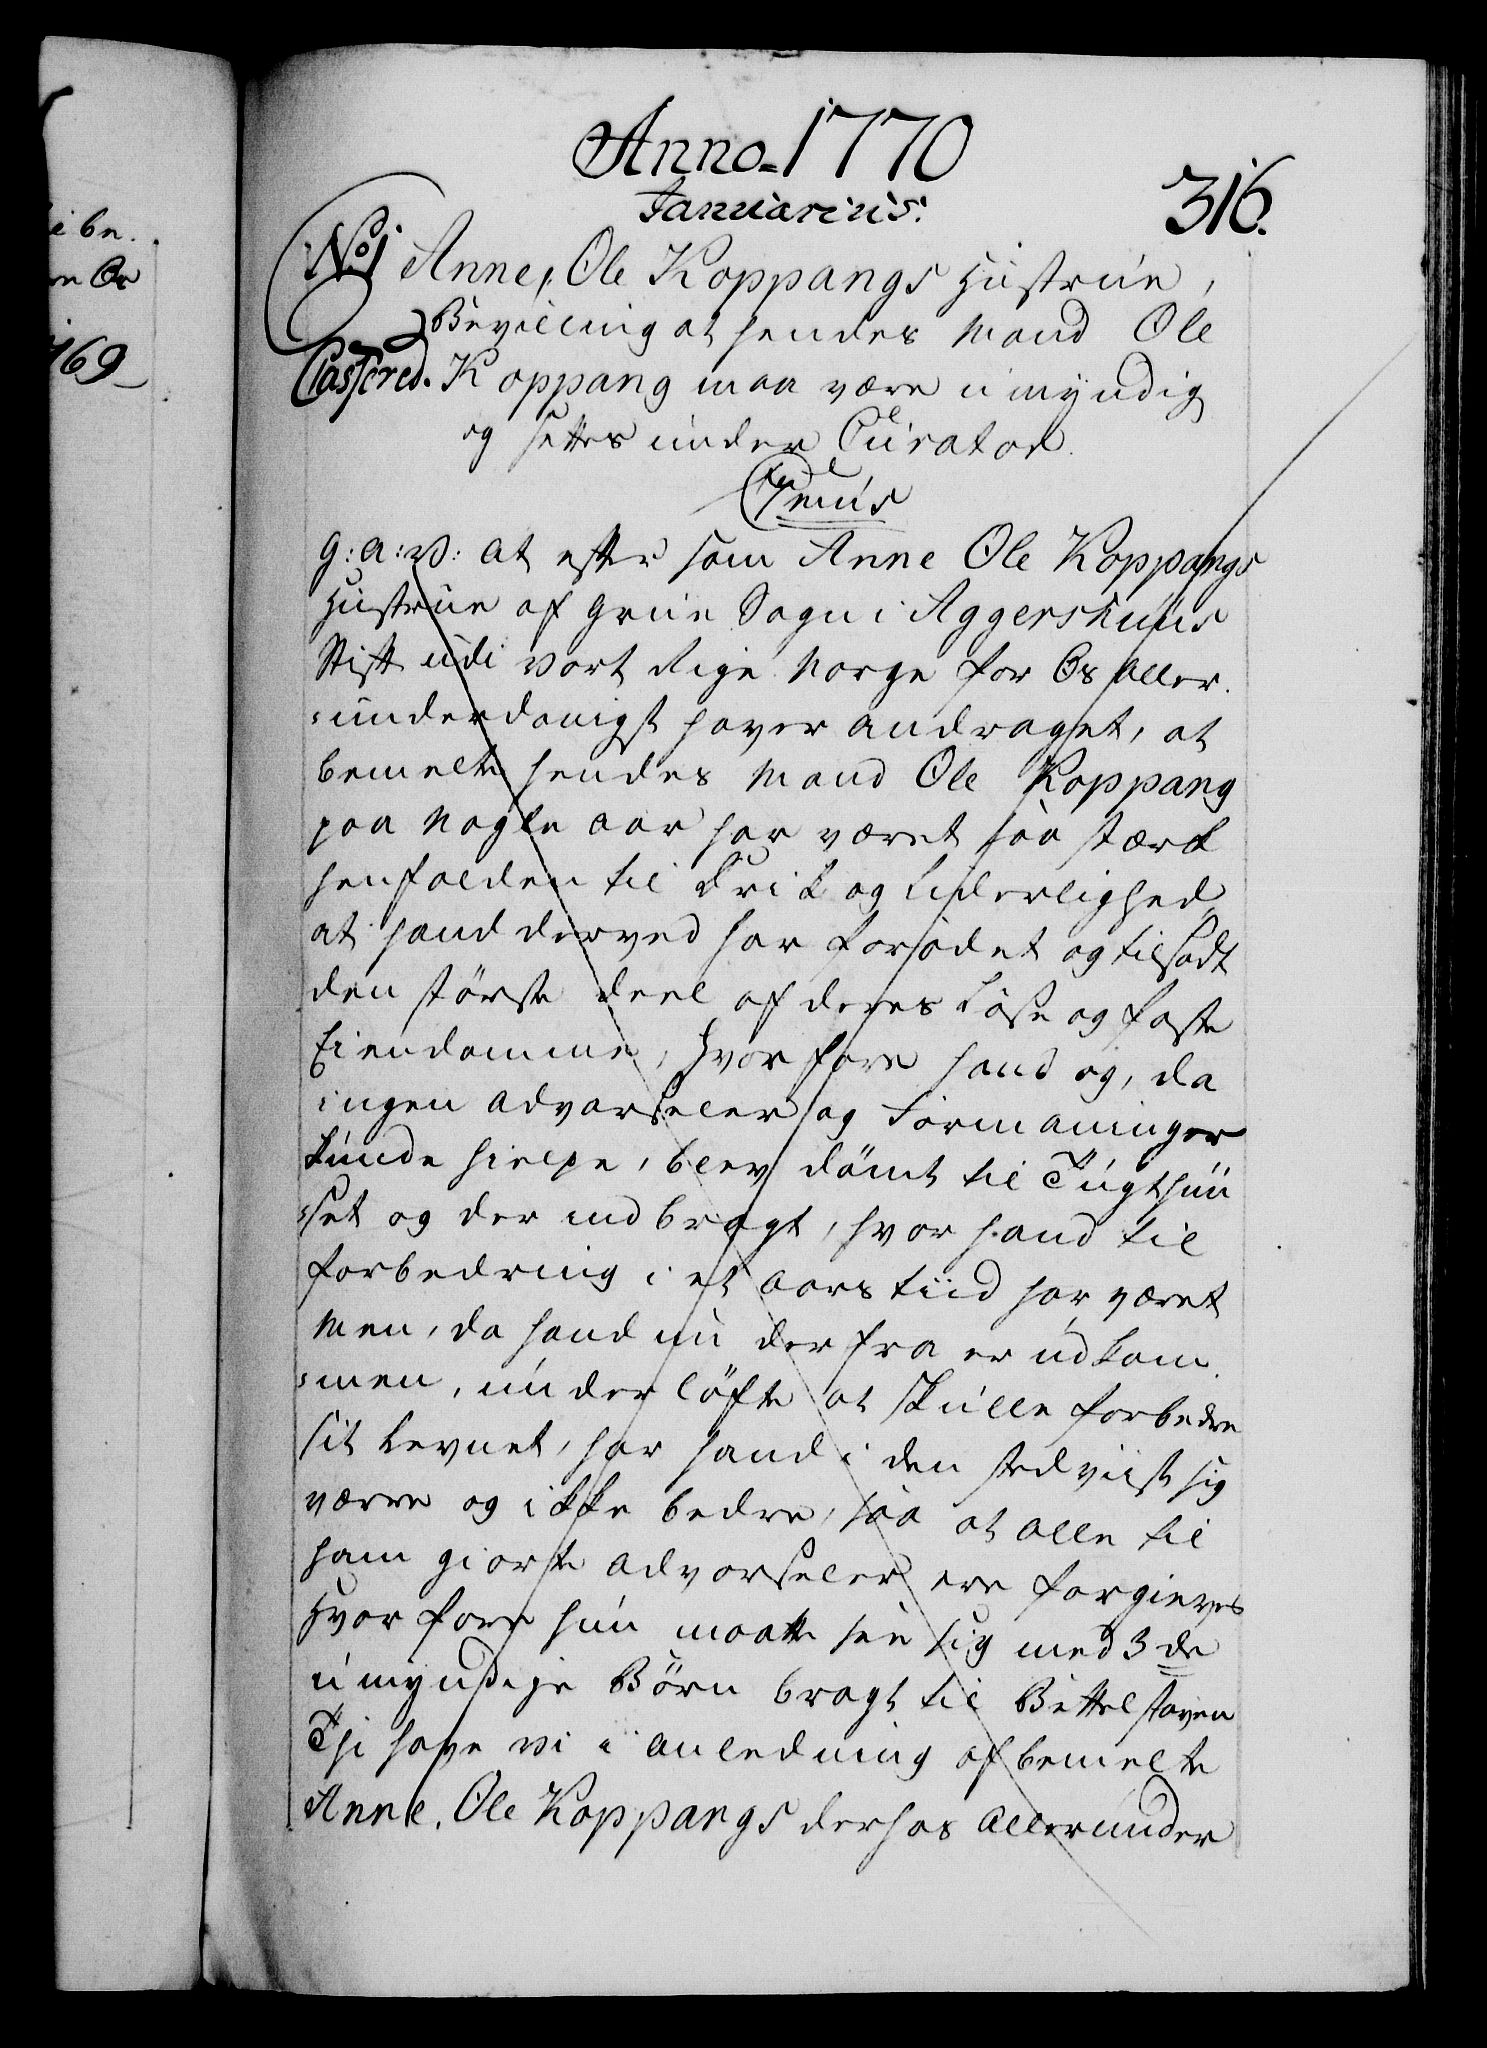 Anno 1770
Januarius.
316.
No 1 Anne, Ole Koppangs Hüstrüe,
Bevilling at hendes Mand Ole
Cassered. Koppang maa være ümÿndig
og settes ünder Cürator.
C 7mus
G: A: V: at efter som Anne Ole Koppangs
Hüstrüe af Grüe Sogn i Aggershüüs
Stift üdi vort Rige Norge for Os Aller-
=ünderdanigst haver andraget, at
bemelte hendes Mand Ole Koppang
paa nogle aar har været saa stærk
henfalden til Drik og Liderlighed
at hand derved har forödet og tilsadt
den störste deel af deres Löse og faste
Eiendomme, hvorfore hand og, da
ingen advarseler og Formaninger
künde hielpe, blev dömt til Tügthüü
=set og der indbragt, hvor hand til
forbedring i et aars tiid har været
Men, da hand nü derfra er üdkom
=men, ünder löfte at skülle forbedre
sit Levnet, har hand i den sted viist sig
værre og ikke bedre, saa at alle til
ham giorte advarseler ere forgieves
Hvorfore hün maatte see sig med 3de
ümÿndige Börn bragt til Bettelstaven
Thi have vi i anledning af bemelte
Anne, Ole Koppangs derhos alleründer
i be.
Os
769